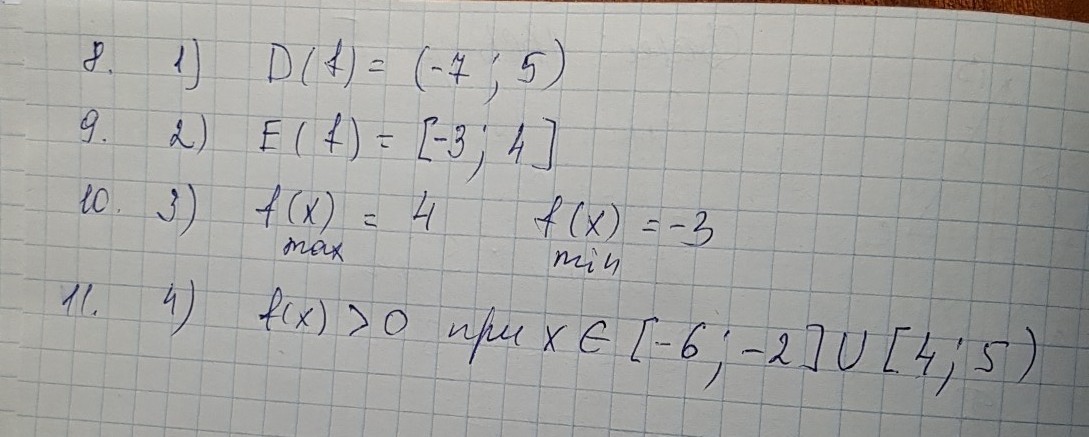 8. 1) D(f) = (-7; 5)
9. 2) E(f) = [-3; 4]
10. 3) f(x) = 4 f(x) = -3
max min
11. 4) f(x) > 0 при x ∈ [-6; -2] ∪ [4; 5)